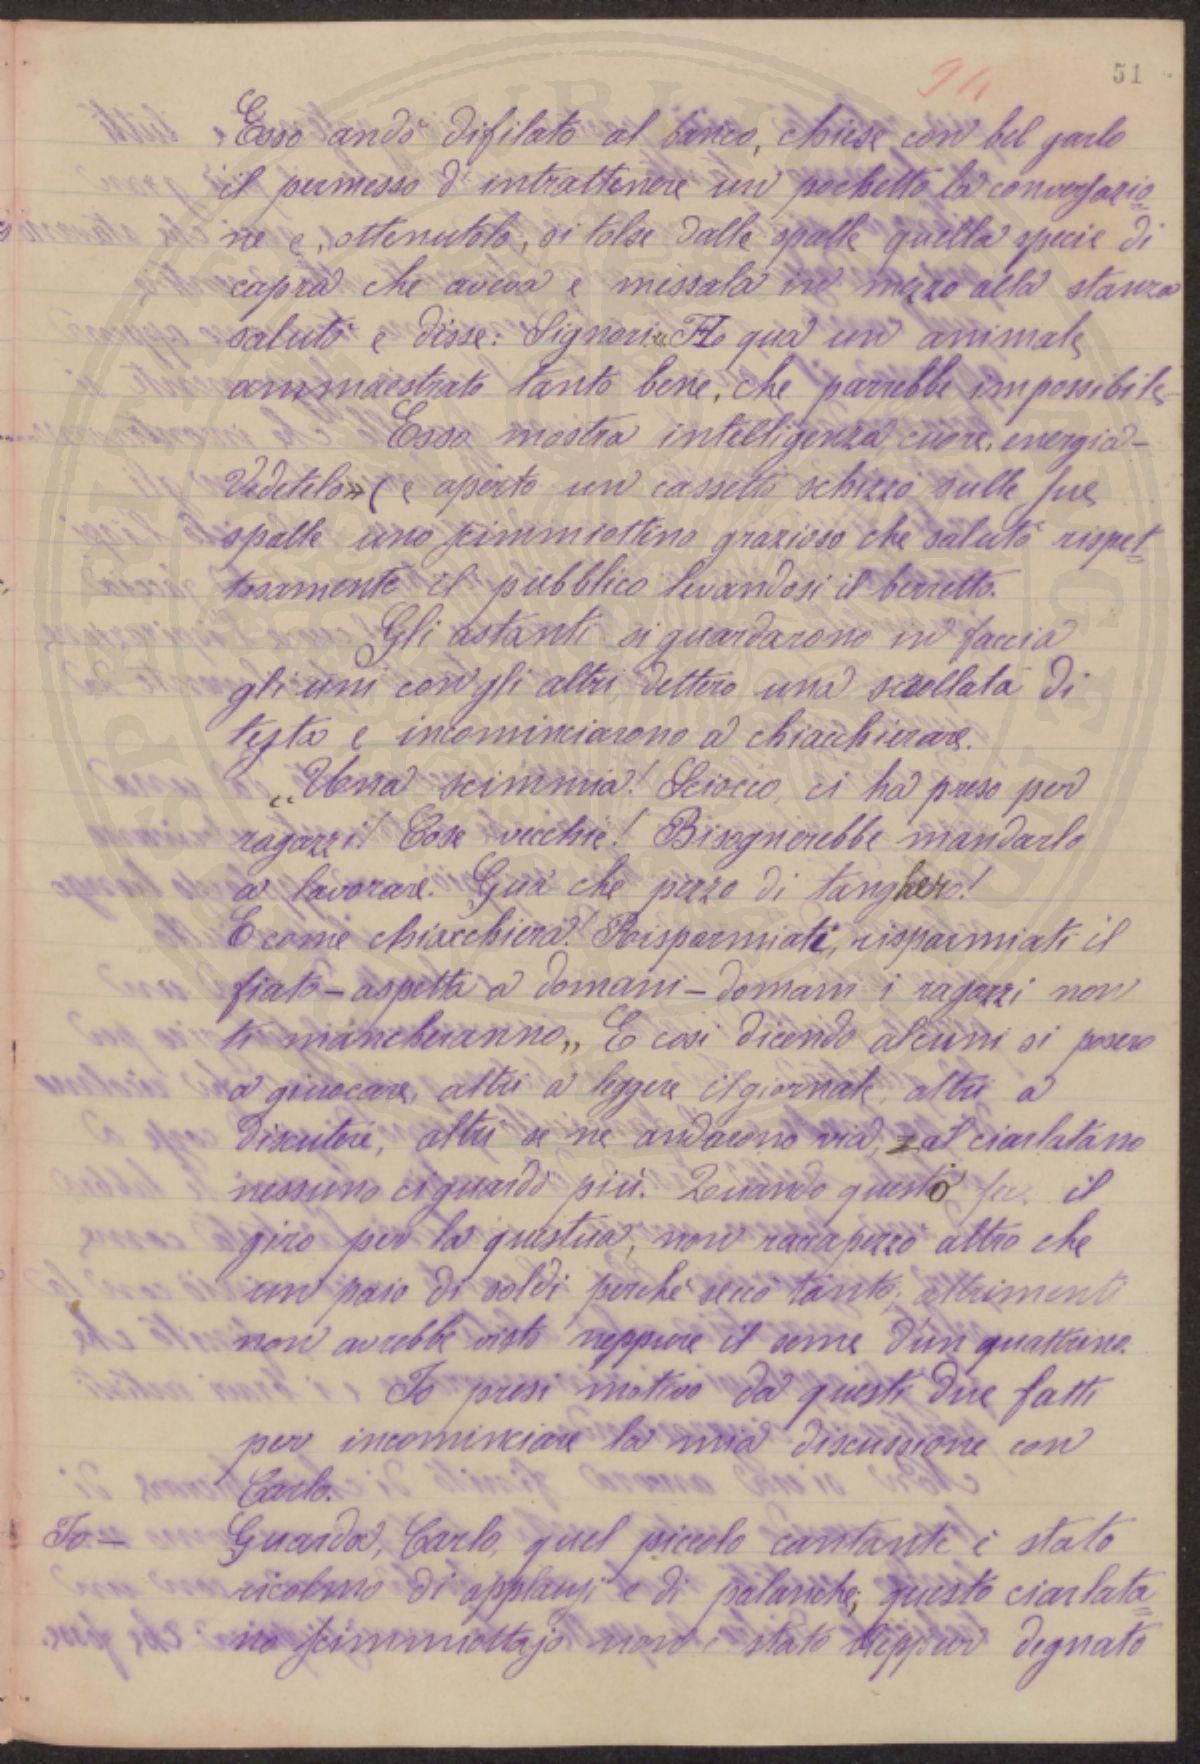 94 51
Esso andò difilato al banco, chiese con bel garbo
il permesso d'intrattenere un pochetto la conversazio=
ne e, ottenutolo, si tolse dalle spalle quella specie di
capra che aveva e messala in mezzo alla stanza
salutò e disse: Signori „Ho qua un animale,
ammaestrato tanto bene, che parrebbe impossibile,
Esso mostra intelligenza, cuore, energia —
Vedetelo» (e aperto un cassetto schizzò sulle sue,
spalle uno scimmiottino grazioso che salutò rispet=
tosamente il pubblico levandosi il berretto.
Gli astanti si guardarono in faccia
gli uni con gli altri, dettero una scrollata di
testa e incominciarono a chiacchierare.
„Una scimmia! Sciocco, ci ha preso per
ragazzi! Cose vecchie! Bisognerebbe mandarlo
a lavorare. Gua' che pezzo di tanghero!
E come chiacchiera! Risparmiati, risparmiati il
fiato — aspetta a domani — domani i ragazzi non
ti mancheranno„ E così dicendo alcuni si posero
a giuocare, altri a leggere il giornale, altri a
discutere, altri se ne andarono via, al ciarlatano
nessuno ci guardò più. Quando questo fe' il
giro per la questua, non raccapezzò altro che
un paio di soldi perchè seccò tanto, altrimenti
non avrebbe visto neppure il seme d'un quattrino.
Io presi motivo da questi due fatti
per incominciare la mia discussione con
Carlo.
Io — Guarda, Carlo, quel piccolo cantante è stato
ricolmo di applausi e di palanche, questo ciarlata=
no scimmiottajo non è stato neppur degnato